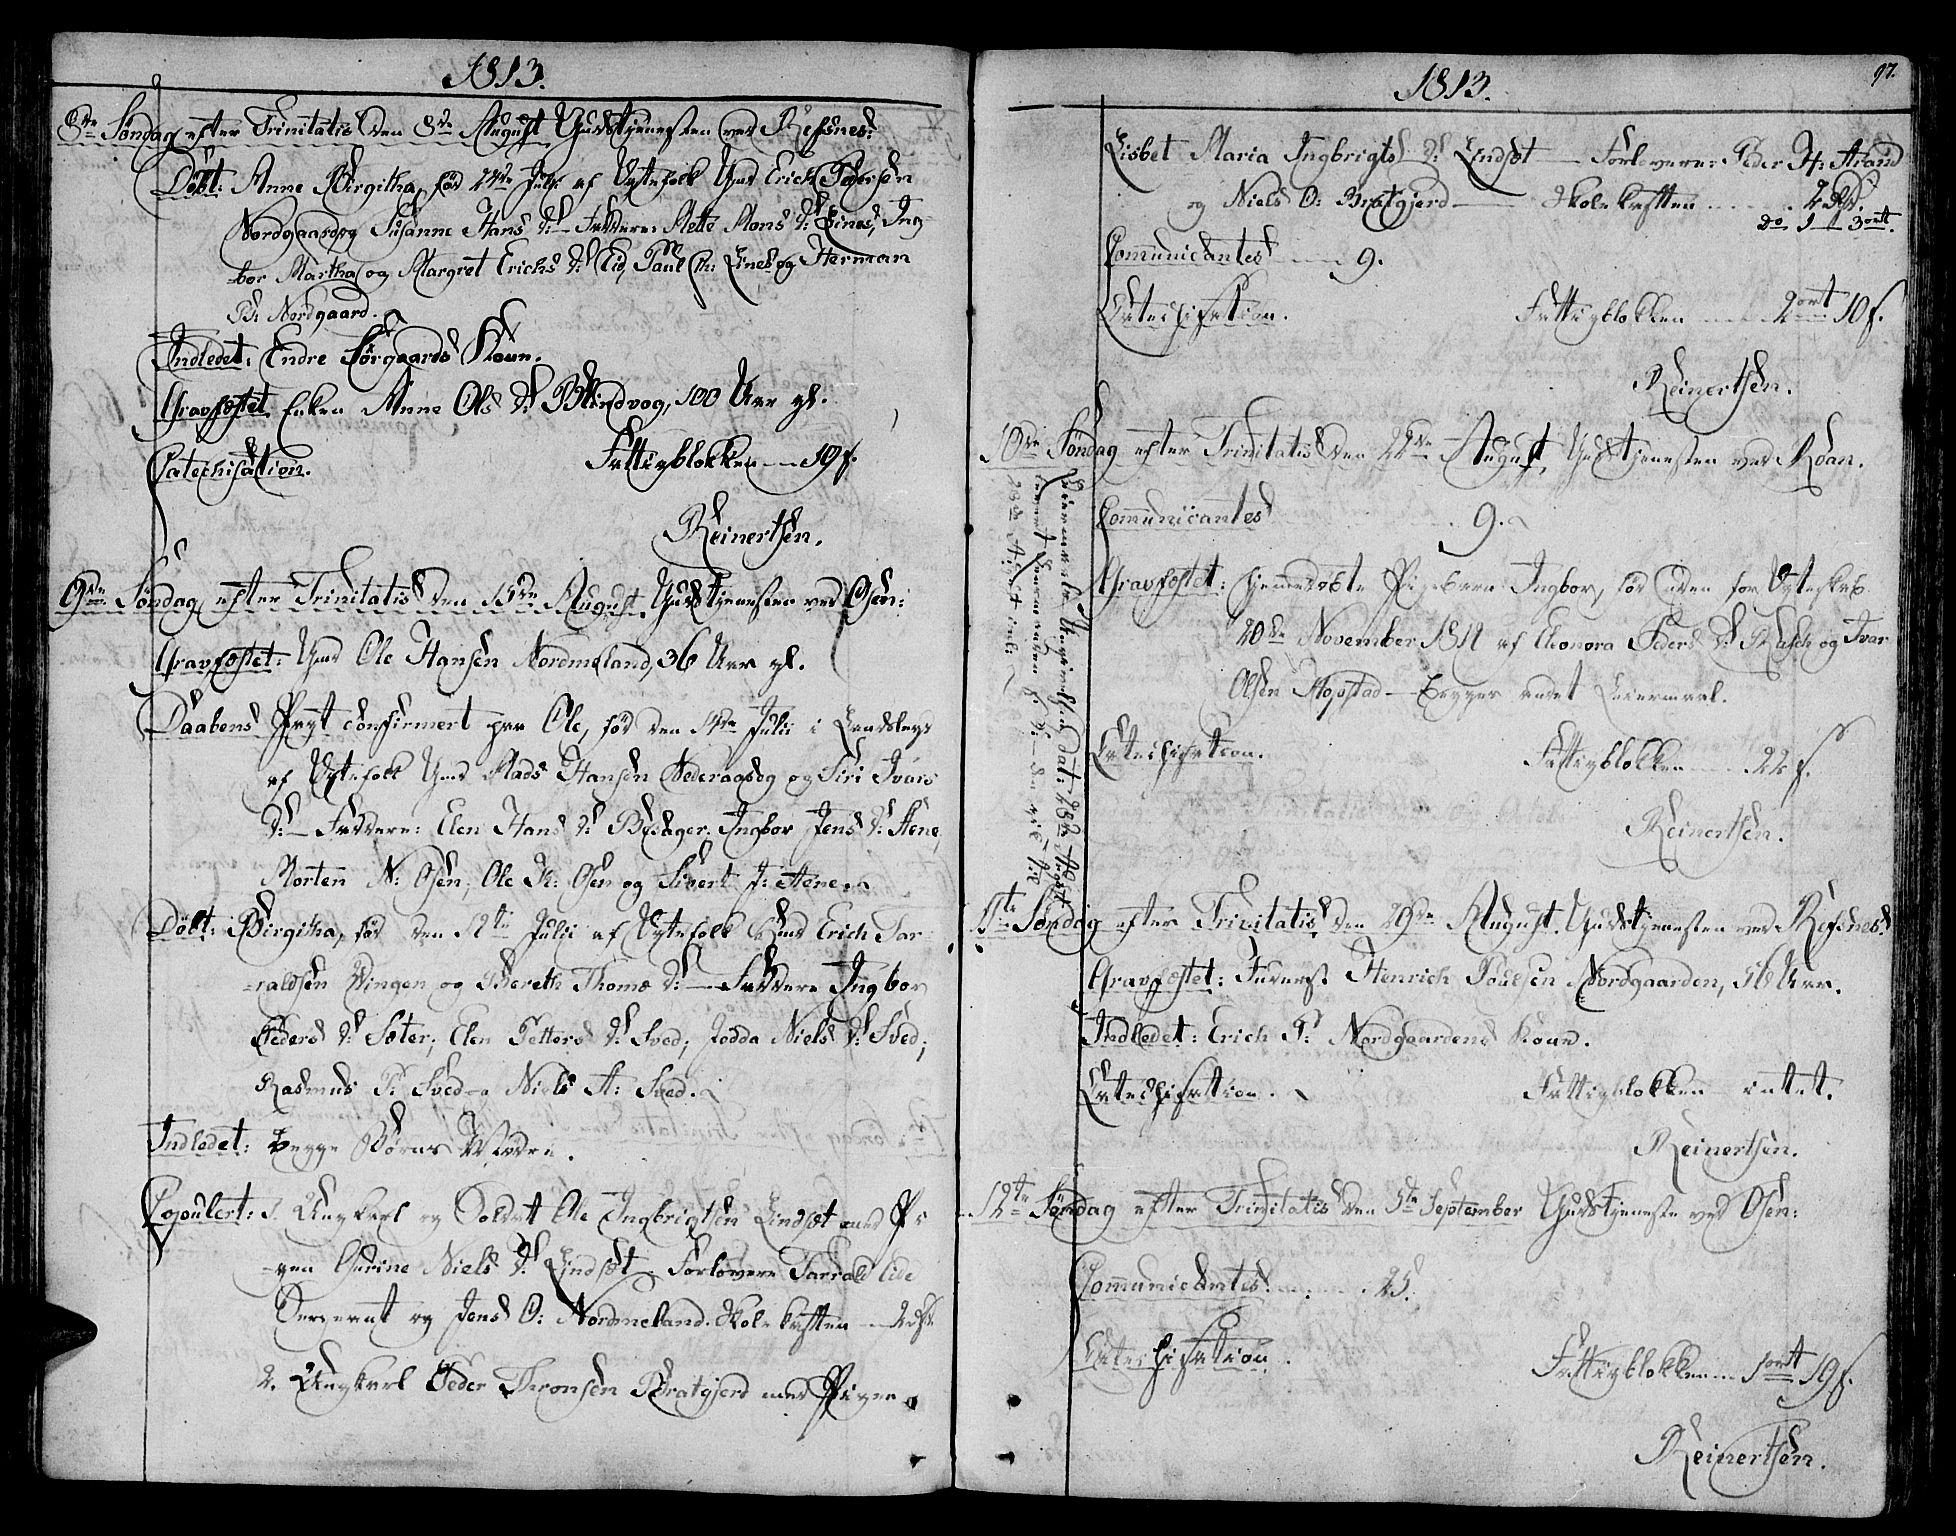 1813.
8de Søndag efter Trinitatis den 8de August Gudstjenesten ved Refsnes:
Døbt: Anne Birgitha, fød 24de Juli af Ægtefolk Gmd Erich Pedersen
Nordgaard og Susanne Hans D: Faddere: Mette Mons D: Eines, Ing-
bor Martha og Margret Erichs D: Eid, Paul Ch: Eines og Herman
P: Nordgaard.
Indledet: Endre Sørgaards Kone.
Gravfæstet Enken Anne Ols D: Blindvog, 100 Aar gl.
Catechisation. Fattigblokken 19 s.
Reinertsen.
9de Søndag efter Trinitatis den 15de August. Gudstjenesten ved Osen:
Gravfæstet: Gmd Ole Hansen Nordmeland, 36 Aar gl.
Daabens Pagt confirmert paa Ole, fød den 14de Julii i
af Ægtefolk Gmd Mads Hansen og Siri Ivars
D: Faddere: Elen Hans D: Besager, Ingbor Jens D: Hene,
Morten N: Osen, Ole K: Osen og Sivert J: Hene.
Døbt: Birgitha, fød den 12te Julii af Ægtefolk Gmd Erich Tar
-raldsen Vingen og Bereth Thomæ D: Faddere Ingbor
Peders D: Sæter; Elen Petters D: Sved; Jodda Niels D: Sved;
Rasmus P: Sved og Niels A: Sved.
Indledet: begge Børns Mødre.
Copulert: 1. Ungkarl og Soldat Ole Ingbrigtsen Lindsæt med Pi
-gen Gurine Niels D: Lindsæt. Forlovere Tarrald Eide
Sergeant og Jens O: Nordmeland. Skolekassen 2
2. Ungkarl Peder Thronsen Bratgjerd med Pigen
1813. 97.
Lisbet Maria Ingbrigts D: Lindsæt Forlovere: Peder H: Strand
og Niels O: Bratgjerd Skolekassen 2 Rd.
Do 1 3 ort.
Communicantes 9.
Catechisation. Fattigblokken 2 ort 10 s.
Reinertsen.
10de Søndag efter Trinitatis den 22de August, Gudstjenesten ved Roan.
Communicantes 9.
Gravfæstet: hjemmedøbte Pigebarn Ingbor, fød uden for Ægteskab
20de November 1812 af Eleonora Peders D: og Ivar
Olsen Hopstad begges andet Leiermaal.
Catechisation. Fattigblokken 22 s.
Reinertsen.
11te Søndag efter Trinitatis den 29de August. Gudstjenesten ved Refsnes:
Gravfæstet: Inderst Henrich Poulsen Nordgaarden, 56 Aar.
Indledet: Erich P: Nordgaardens Kone.
Catechisation. Fattigblokken intet.
Reinertsen.
12te Søndag efter Trinitatis den 5te September Gudstjeneste ved Osen:
Communicantes 25.
Catechisation. Fattigblokken 1 ort 19 s.
Reinertsen.